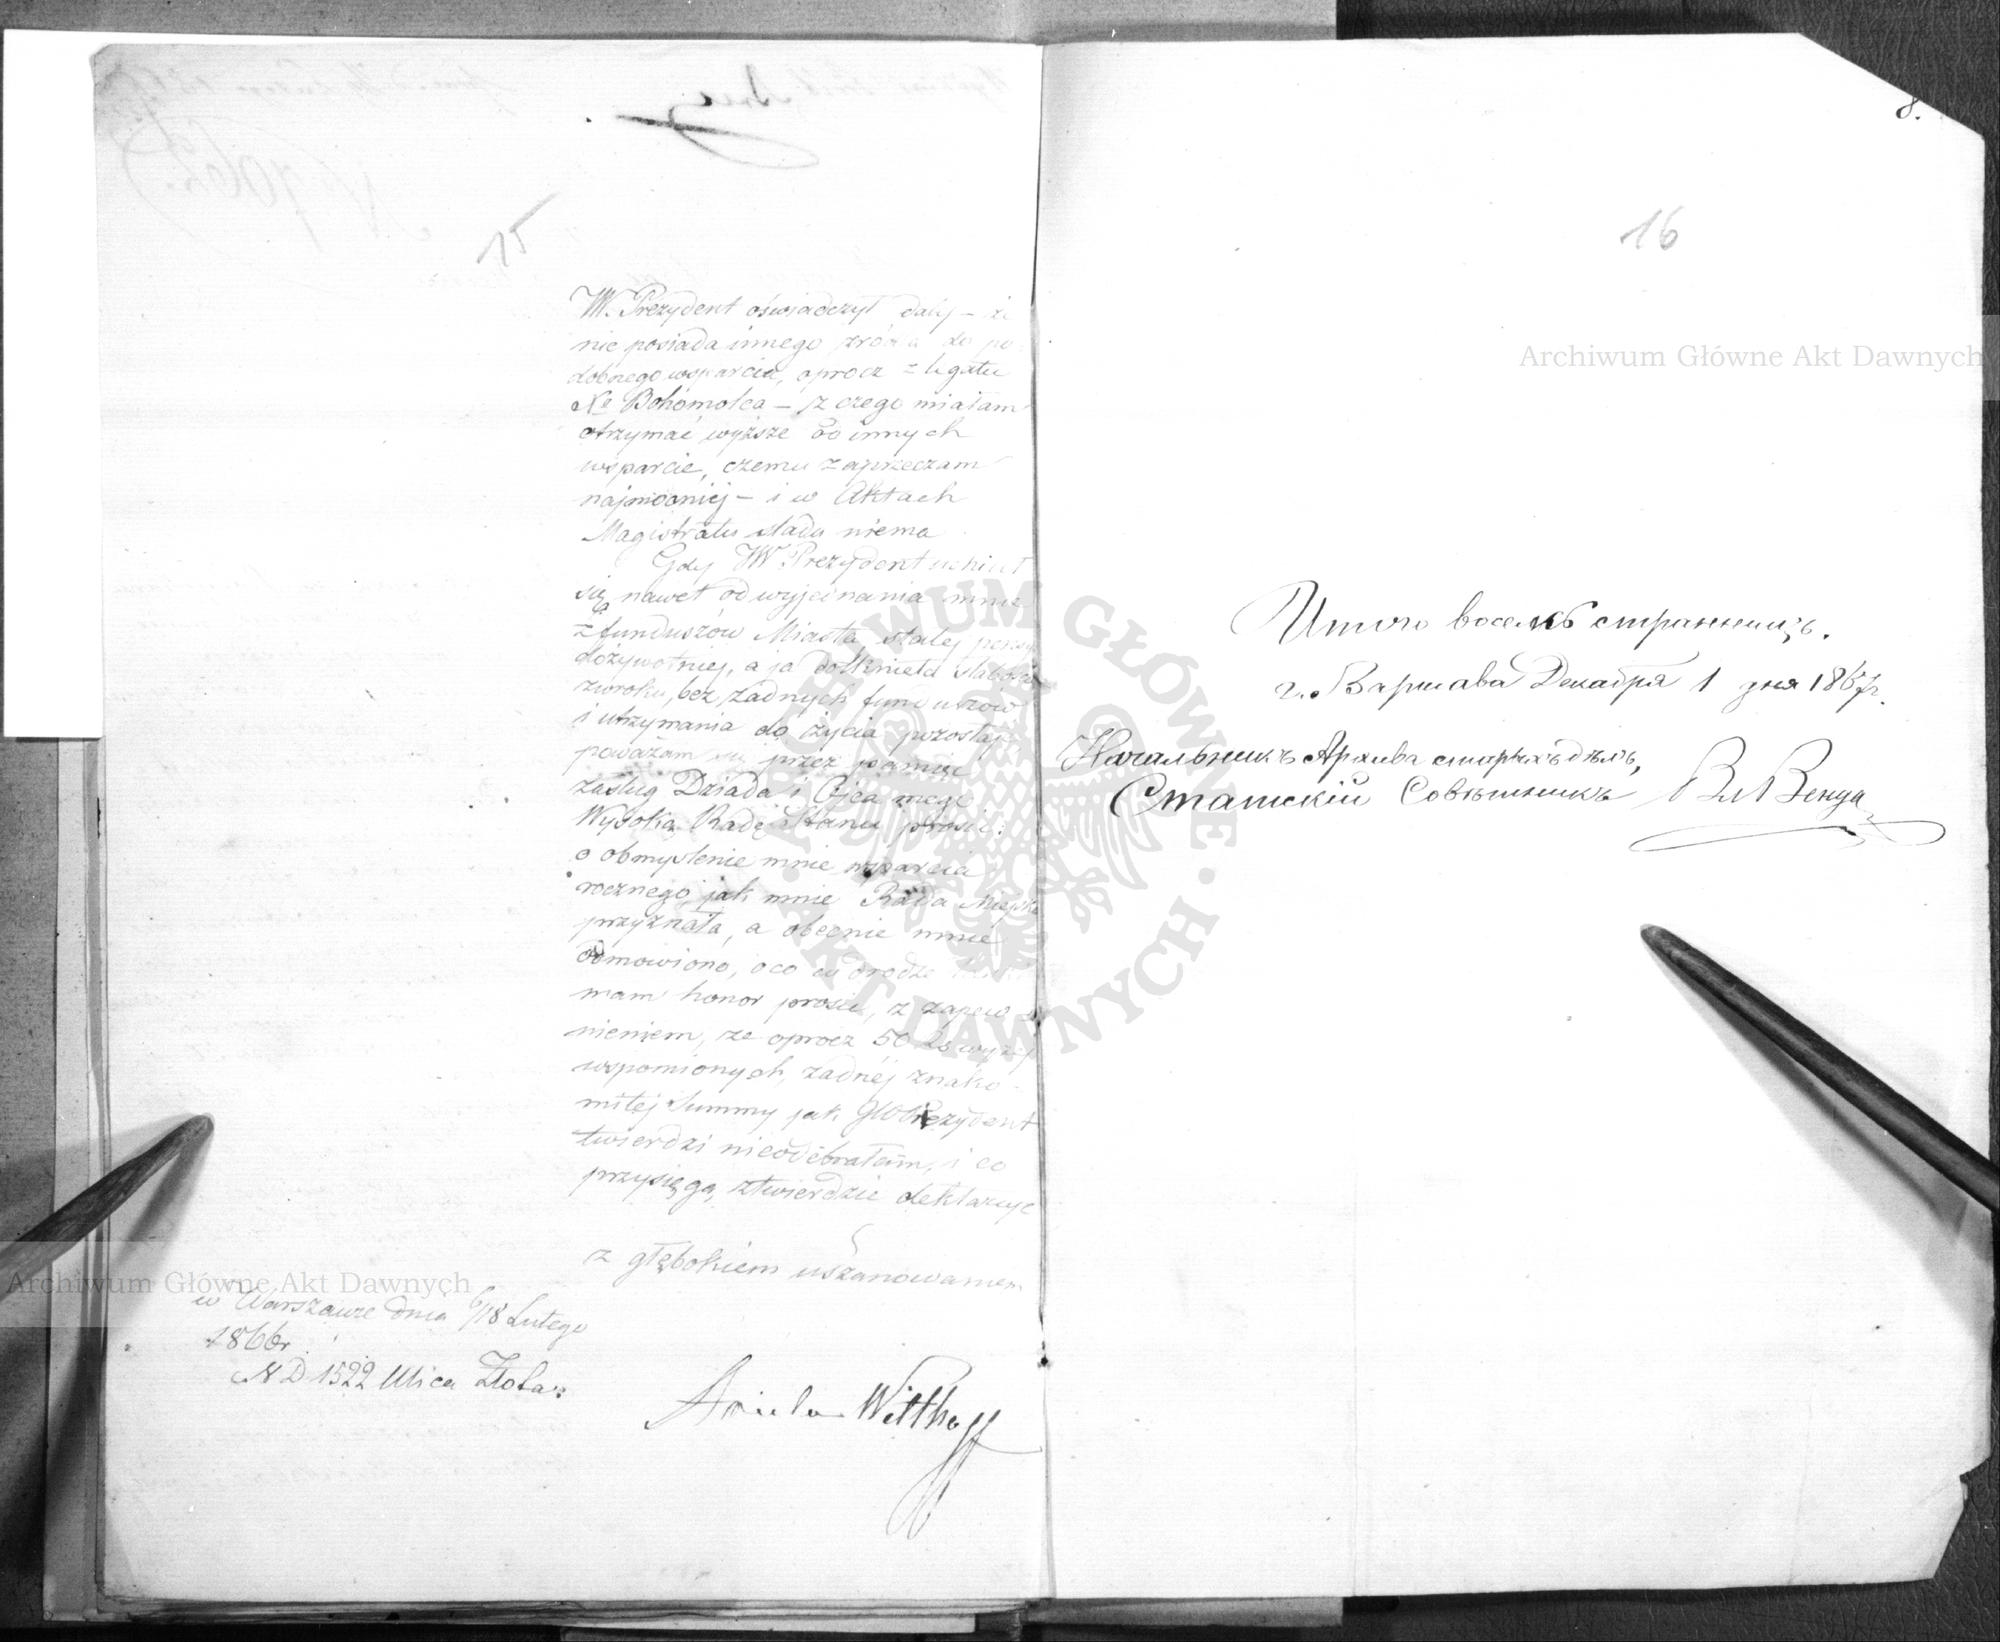 15
W. Prezydent oświadczył daley – że
nie posiada innego źródła do po
dobnego wsparcia, oprocz z legatu
Xa Bohomolca – z czego miałam
otrzymać wyższe od innych
wsparcie, czemu zaprzeczam
najmocniej – i w Aktach
Magistratu sladu niema
Gdy JW. Prezydent uchilił
się nawet od wyjednania mnie
z funduszów Miasta stałej pensyi
dożywotniej, a ja dotknięta słabością
wzroku, bez żadnych funduszów
i utrzymania do życia pozostaję
poważam się przez pamięć
zasług Dziada i Ojca mego
Wysoką Radę Stanu prosić:
o obmyslenie mnie wsparcia
rocznego, jak mnie Rada Miejska
przyznała, a obecnie mnie
odmowiono, o co w drodze
mam honor prosić, z zapew
nieniem, ze oprocz 50 Rs wyżej
wspomionych, żadnéj znako-
mitej Summy jak JW Prezydent
twierdzi nieodebrałam, i co
przysięgą ztwierdzić deklaruje
z głębokiem uszanowaniem
w Warszawie dnia 6/18 Lutego
1866r
N D 1522 Ulica Złota
Aniela Witthoff
8.
16
Итого восемь страницъ.
г. Варшава Декабря 1 дня 1867 г.
Начальникъ Архива старыхъ дѣлъ,
Статскій Совѣтникъ Вл Венда
Archiwum Główne Akt Dawnych
Archiwum Główne Akt Dawnych
ARCHIWUM GŁÓWNE · AKT DAWNYCH ·